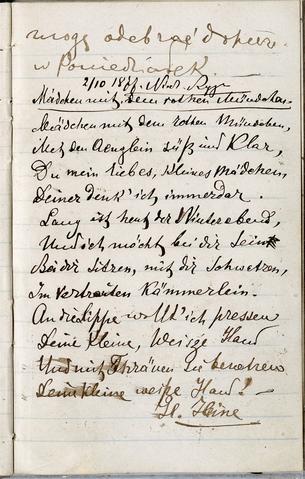 mogę odebrać dopiero
w Poniedziałek.
2/10
Mädchen mit dem rothen Mündchen
Mädchen mit dem rothen Mündchen,
Mit den Aeuglein süß und klar,
Du mein liebes, kleines Mädchen,
Deiner denk' ich immerdar.
Lang ist heut der Winterabend,
Und ich möcht bei dir sein
Bei dir sitzen, mit dir schwatzen,
Im vertrauten Kämmerlein.
An die Lippe wollt' ich pressen
Deine kleine, weisse Hand
Und mit Thränen sie benetzen
Deine kleine weiße Hand! -
H. Heine